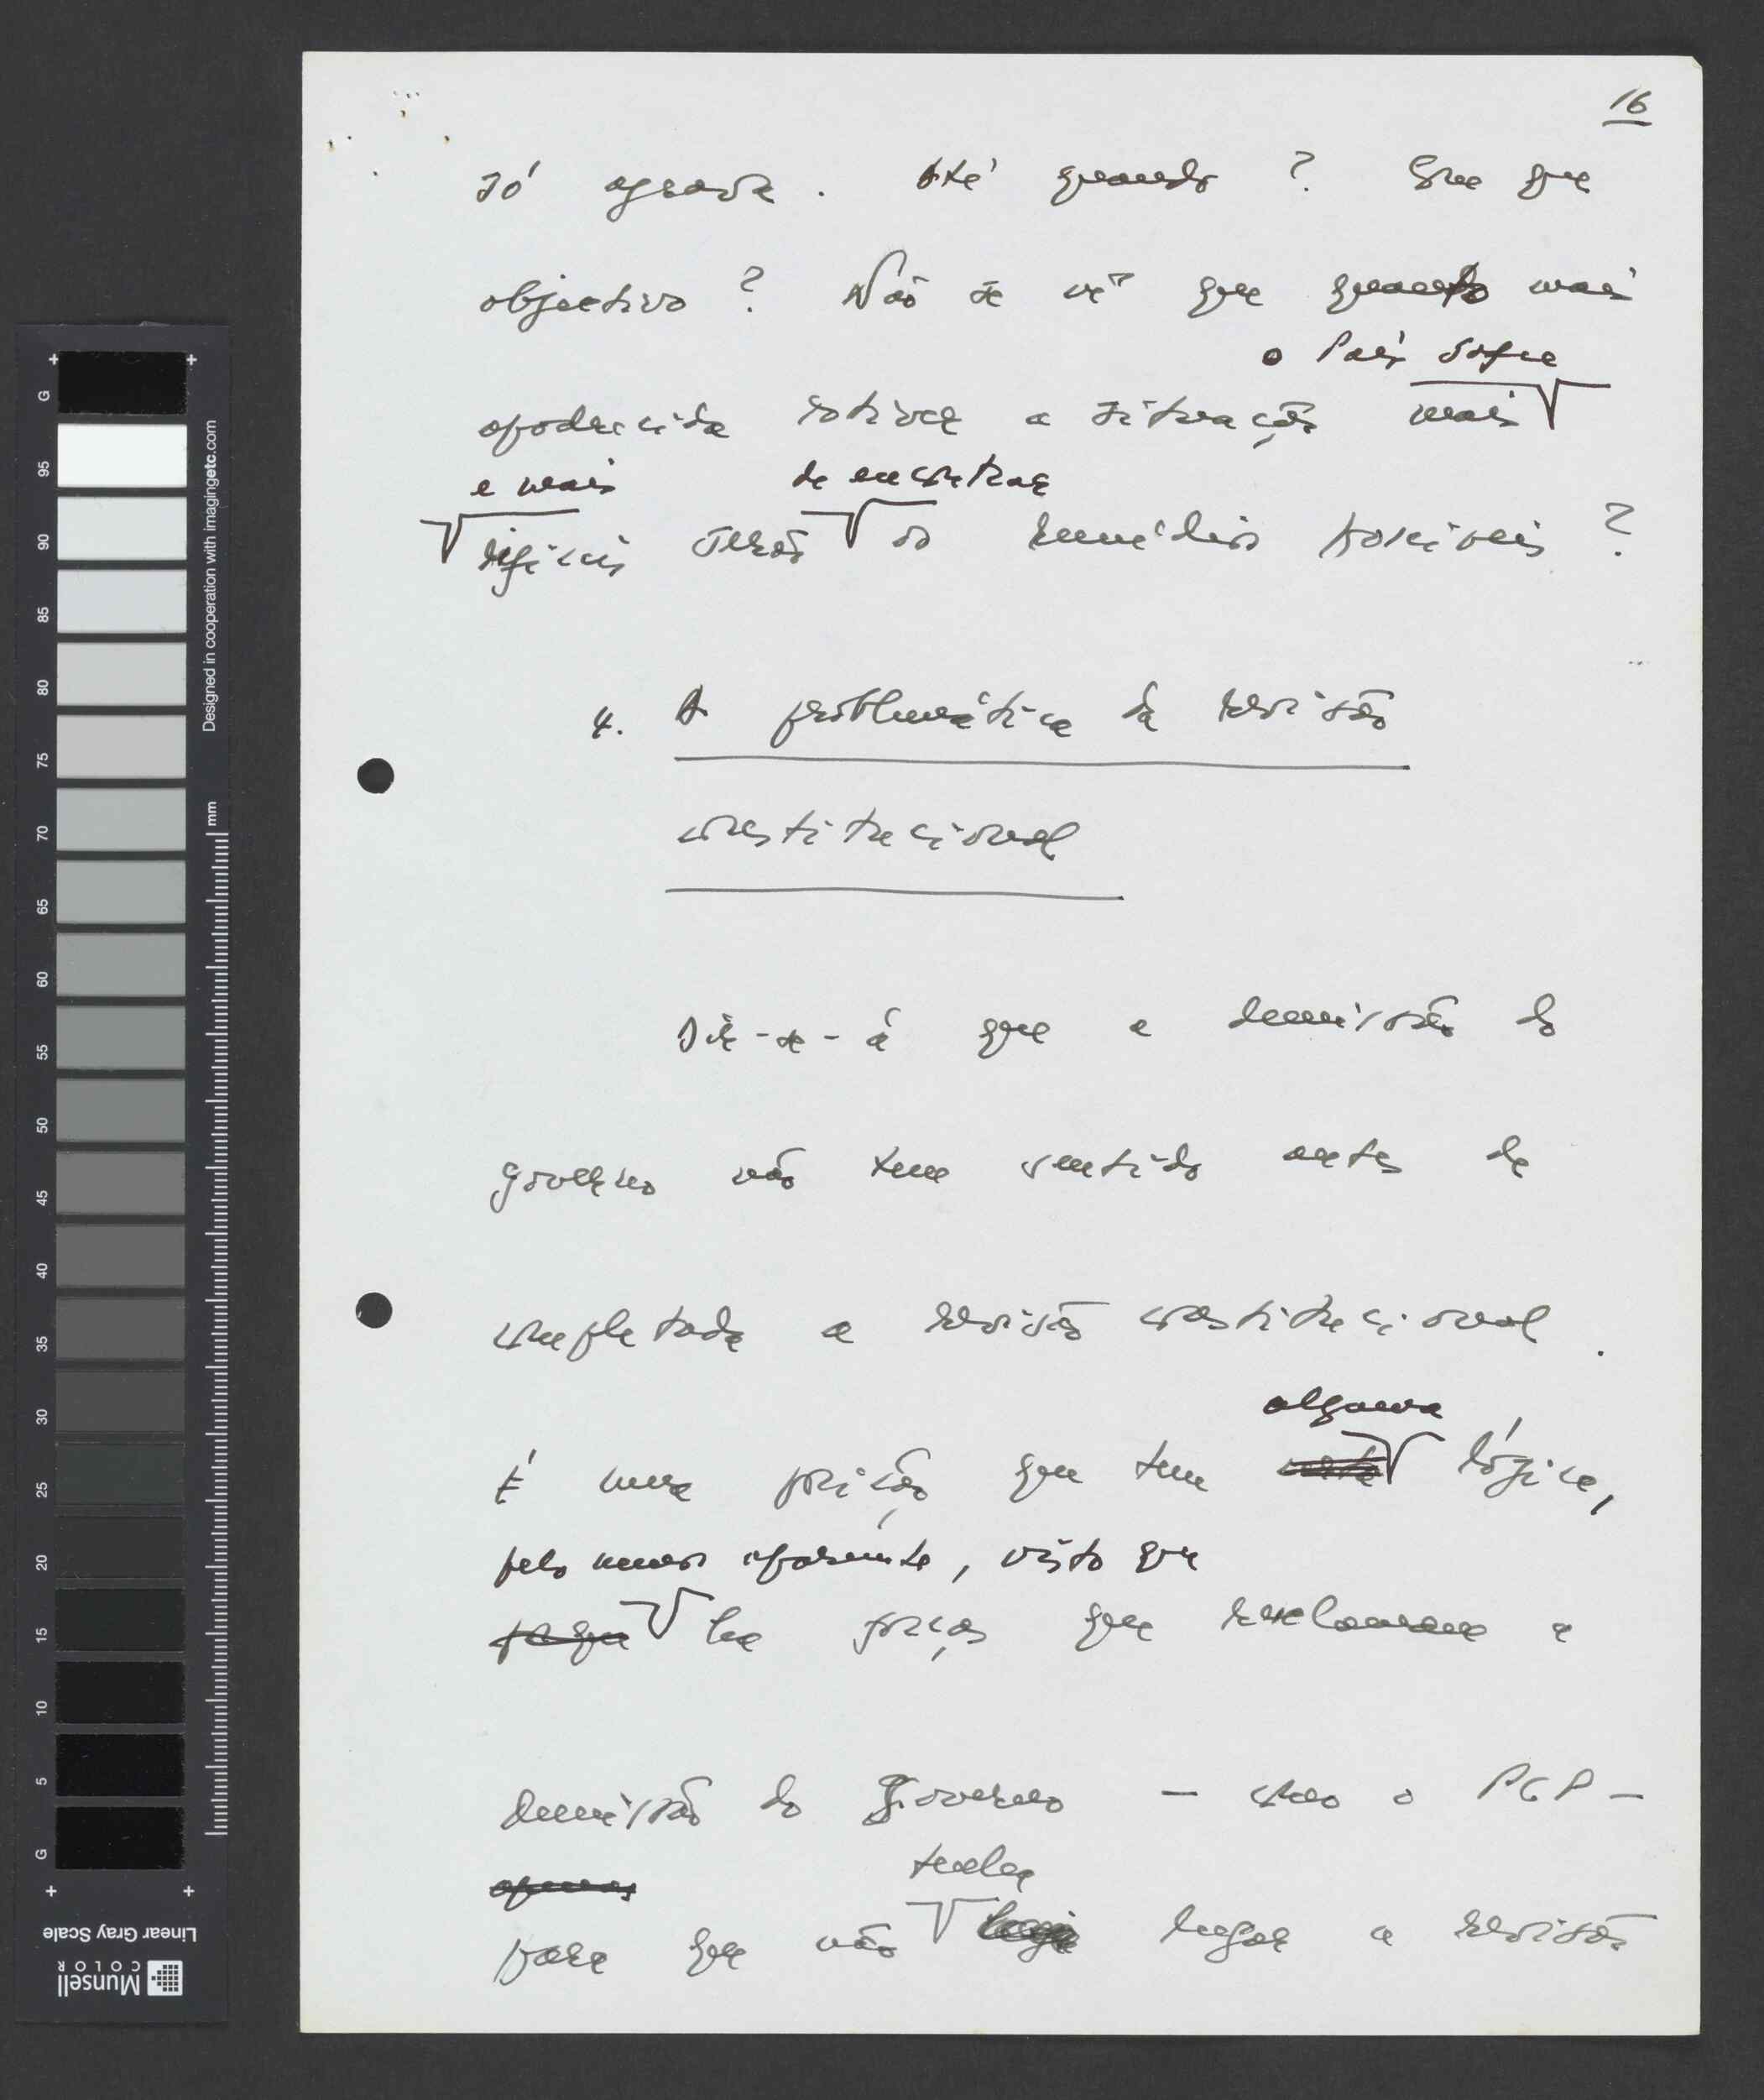 16
só agrava. Até quando? Com que
objectivo? Não se vê que quanto mais
o País sofre
apodrecida estiver a situação mais
e mais de encontrar
difíceis serão os remédios possíveis?
4. A problemática da revisão
constitucional
Dir-se-á que a demissão do
governo não tem sentido antes de
completada a revisão constitucional.
alguma
É uma posição que tem lógica,
pelo menos aparente, visto que
há forças que reclamam a
demissão do Governo — como o PCP —
apenas tenha
para que não haja lugar a revisão
G 95 90 85 80 75 70 65 60 55 50 45 40 35 30 25 20 15 10 5 G
mm
Designed in cooperation with imagingetc.com
Linear Gray Scale
Munsell
COLOR